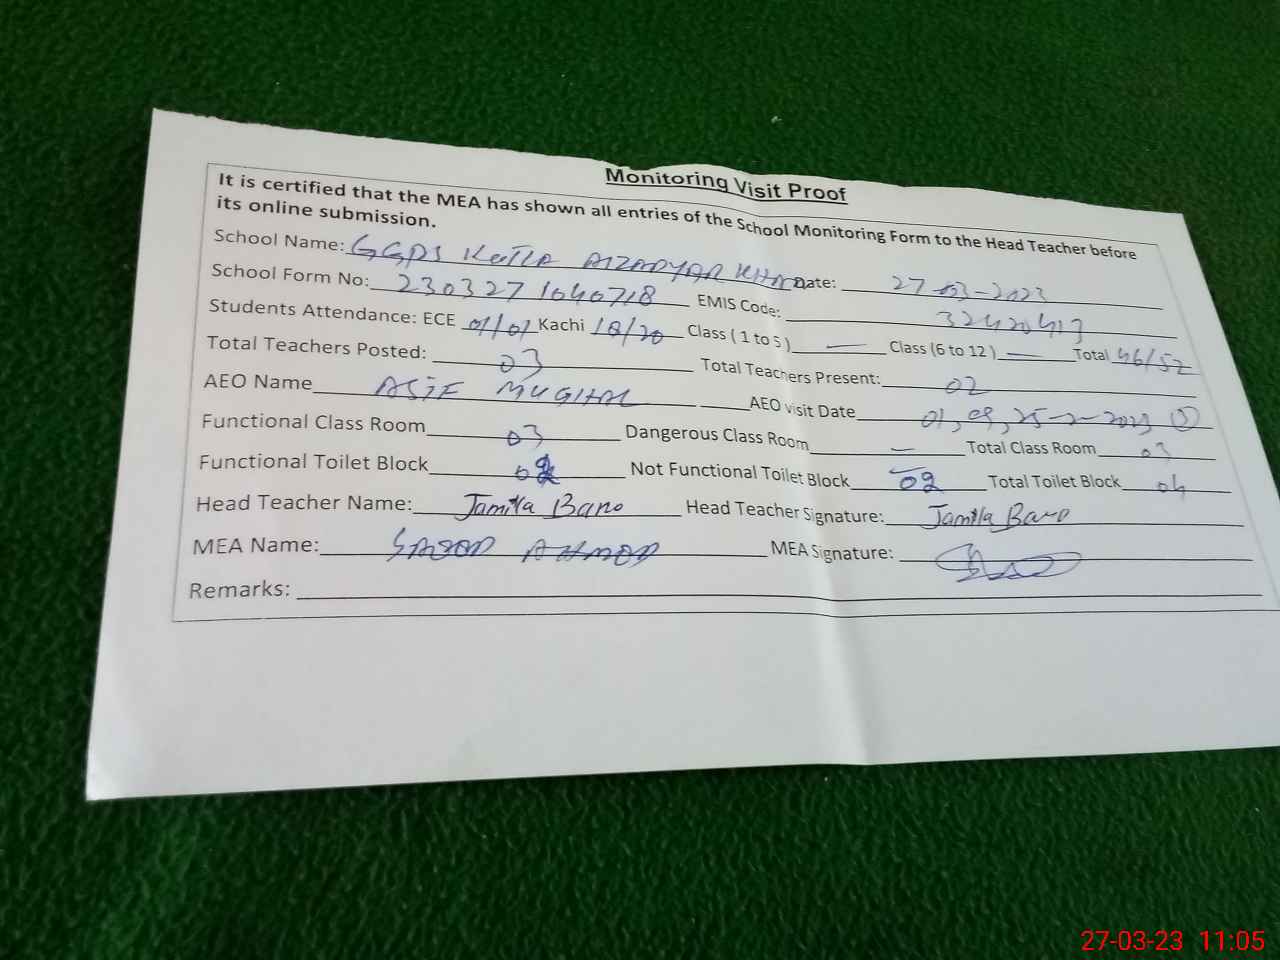 Monitoring Visit Proof
It is certified that the MEA has shown all entries of the School Monitoring Form to the Head Teacher before
its online submission.
School Name: GGPS Kotla AIZADYAR KHAN Date: 27-03-2023
School Form No: 230327 1040718 EMIS Code: 32420413
Students Attendance: ECE 01/01 Kachi 18/20 Class ( 1 to 5 ) — Class (6 to 12 ) — Total 46/52
Total Teachers Posted: 03 Total Teachers Present: 02
AEO Name ASIF MUGHAL AEO visit Date 01, 09, 25-2-2023
Functional Class Room 03 Dangerous Class Room — Total Class Room 03
Functional Toilet Block 02 Not Functional Toilet Block 02 Total Toilet Block 04
Head Teacher Name: Jamila Bano Head Teacher Signature: Jamila Bano
MEA Name: SAJOOD AHMOD MEA Signature:
Remarks:
27-03-23 11:05